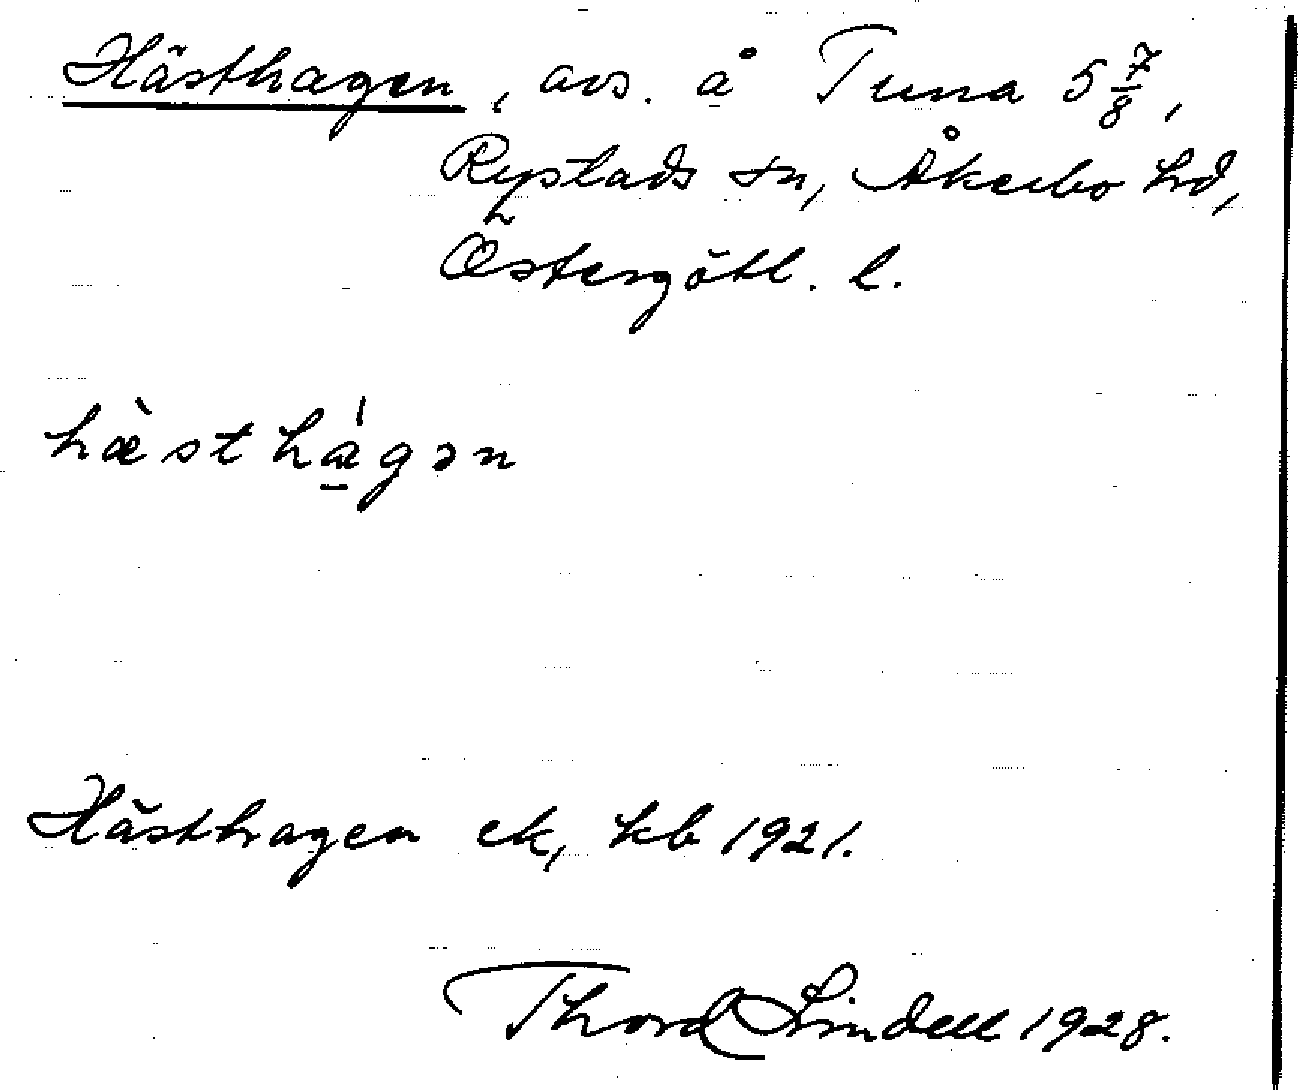 Hästhagen, avs. å Tuna 5 7/8,
Rystads sn, Åkerbo hd,
Östergötl. l.
hæ̀sthá̱gən
Hästhagen ek, kb 1921.
Thord Lindell 1928.